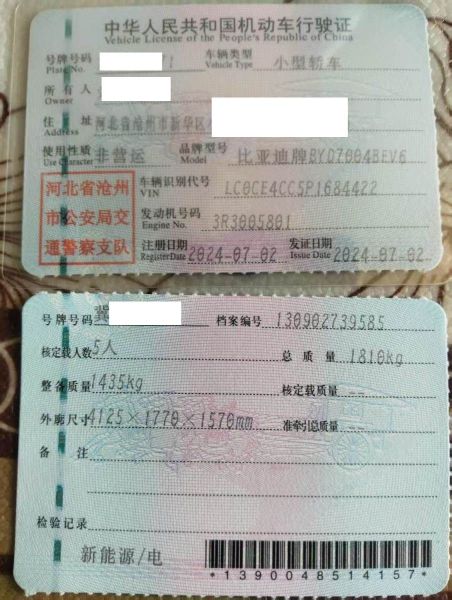 中华人民共和国机动车行驶证
Vehicle License of the People's Republic of China
号牌号码 车辆类型 小型轿车
Plate No. Vehicle Type
所有人
Owner
住址 河北省沧州市新华区
Address
使用性质 非营运 品牌型号 比亚迪牌BYD7004BEV6
Use Character Model
河北省沧州
市公安局交
通警察支队
车辆识别代号 LC0CE4CC5P1684422
VIN
发动机号码 3R3005801
Engine No.
注册日期 2024-07-02 发证日期 2024-07-02
Register Date Issue Date
号牌号码 冀 档案编号 130902739585
核定载人数 5人 总质量 1810kg
整备质量 1435kg 核定载质量 --
外廓尺寸 4125×1770×1570mm 准牵引总质量 --
备注
检验记录
新能源/电
*1390048514157*